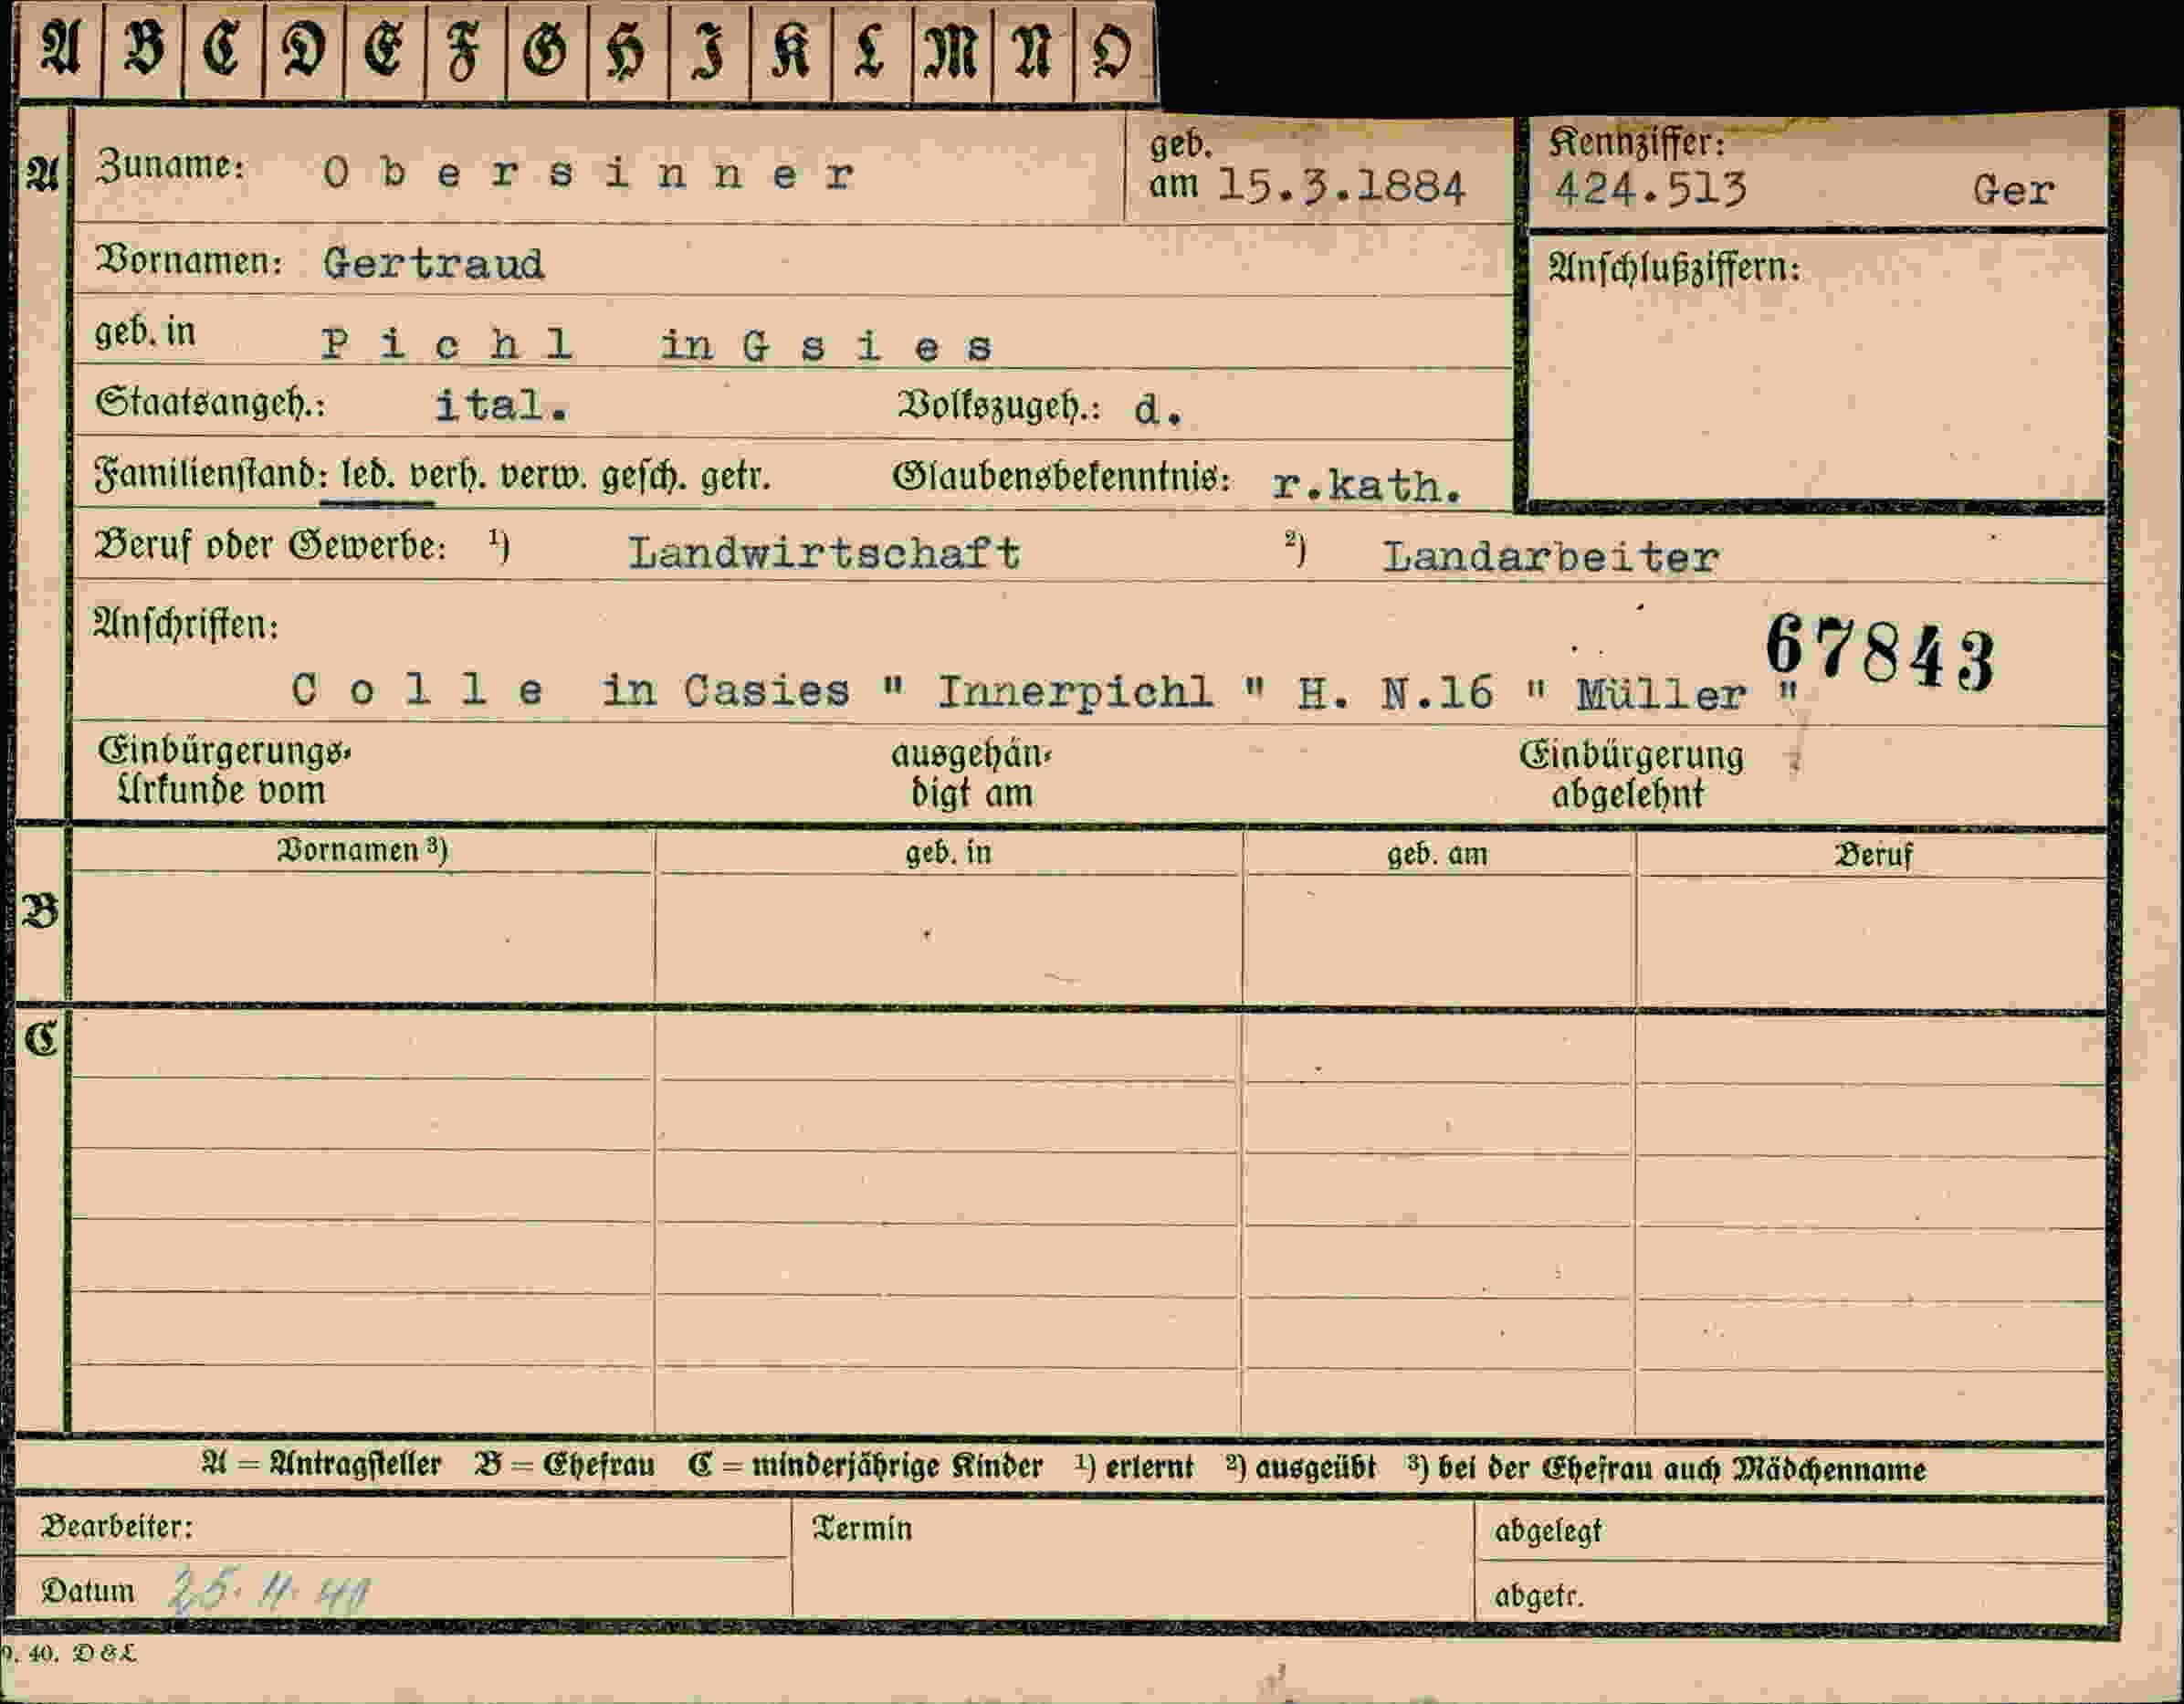 A B C D E F G H I K L M N O
A Zuname: Obersinner geb. am 15.3.1884 Kennziffer: 424.513 Ger
Vornamen: Gertraud Anschlußziffern:
geb. in Pichl in Gsies
Staatsangeh.: ital. Volkszugeh.: d.
Familienstand: led. verh. verw. gesch. getr. Glaubensbekenntnis: r.kath.
Beruf oder Gewerbe: ¹) Landwirtschaft ²) Landarbeiter
Anschriften: 67843
Colle in Casies " Innerpichl " H. N.16 " Müller "
Einbürgerungs- ausgehän- Einbürgerung
Urkunde vom digt am abgelehnt
Vornamen ³) geb. in geb. am Beruf
B
C
A = Antragsteller B = Ehefrau C = minderjährige Kinder ¹) erlernt ²) ausgeübt ³) bei der Ehefrau auch Mädchenname
Bearbeiter: Termin abgelegt
Datum 25. 11. 40 abgetr.
9. 40. D & L